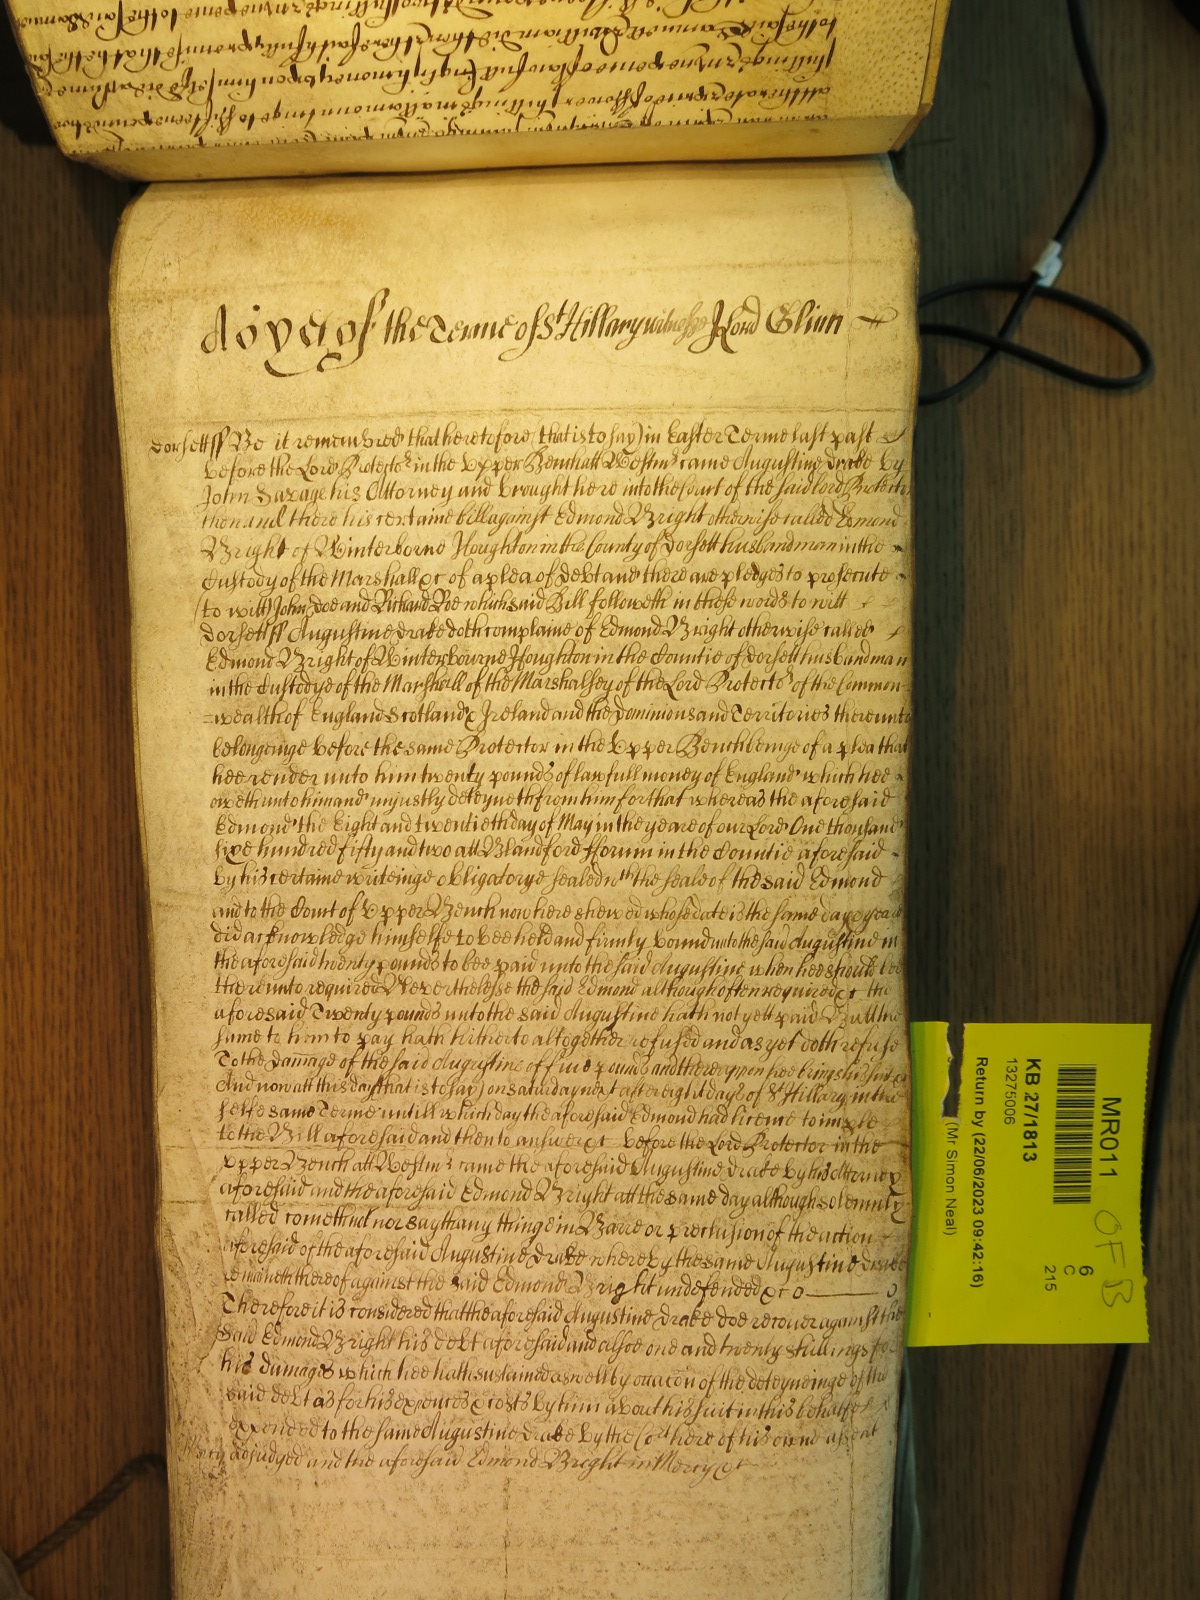 As yet of the Terme of St Hillary witnesse J Lord Glinn
Dorsett ss Be it remembred that heretofore (that is to say) in Easter Terme last past
before the Lord Protector in the Upper Bench att Westmr came Augustine Drake by
John Savage his Attorney and brought here into the Court of the said Lord Protector
then and there his certaine bill against Edmond Bright otherwise called Edmond
Bright of Winterborne Houghton in the County of Dorsett husbandman in the
Custody of the Marshall &c of a plea of Debt and there are pledges to prosecute
(to witt) John Doe and Richard Roe which said Bill followeth in these words to witt
Dorsett ss Augustine Drake doth complaine of Edmond Bright otherwise called
Edmond Bright of Winterbourne Houghton in the Countie of Dorsett husbandman
in the Custodye of the Marshall of the Marshalsey of the Lord Protector of the Common
=wealth of England Scotland & Ireland and the Dominions and Territories thereunto
belongeinge before the same Protector in the Upper Bench beinge of a plea that
hee render unto him twenty pounds of lawfull money of England which hee
oweth unto him and unjustly deteyneth from him for that whereas the aforesaid
Edmond the Eight and twentieth day of May in the yeare of our Lord One thousand
five hundred fifty and two att Blandford Fforum in the Countie aforesaid
by his certaine writeinge obligatorye sealed wth the seale of the said Edmond
and to the Court of Upper Bench now here shewed whose date is the same day & yeare
did acknowledge himselfe to bee held and firmly bound unto the said Augustine in
the aforesaid twenty pounds to bee paid unto the said Augustine when hee should bee
thereunto required Neverthelesse the said Edmond although often required &c the
aforesaid Twenty pounds unto the said Augustine hath not yett paid Butt the
same to him to pay hath hitherto altogether refused and as yet doth refuse
To the damage of the said Augustine of five pounds and thereupon hee brings his suite &c
And now att this day (that is to say) on Saturday next after eight dayes of St Hillary in the
selfe same Terme untill which day the aforesaid Edmond had licence to imple
to the Bill aforesaid and then to answer &c before the Lord Protector in the
Upper Bench att Westmr came the aforesaid Augustine Drake by his Attorney
aforesaid and the aforesaid Edmond Bright att the same day although solemnly
called cometh not nor sayth any thinge in Barre or preclusion of the action
aforesaid of the aforesaid Augustine Drake whereby the same Augustine Drake
remaineth thereof against the said Edmond Bright undefended &c
Therefore it is considered that the aforesaid Augustine Drake doe recover against the
said Edmond Bright his debt aforesaid and alsoe one and twenty shillings for
his damages which hee hath sustained aswell by occacon of the deteyneinge of the
said debt as for his expences & costs by him about his suit in this behalfe
expended to the same Augustine Drake by the Cort here of his owne assent
Mercy adjudged and the aforesaid Edmond Bright in Mercy &c
MR011
6
C
215
KB 27/1813
13275006
Return by (22/06/2023 09:42:16)
(Mr Simon Neal)
OF B